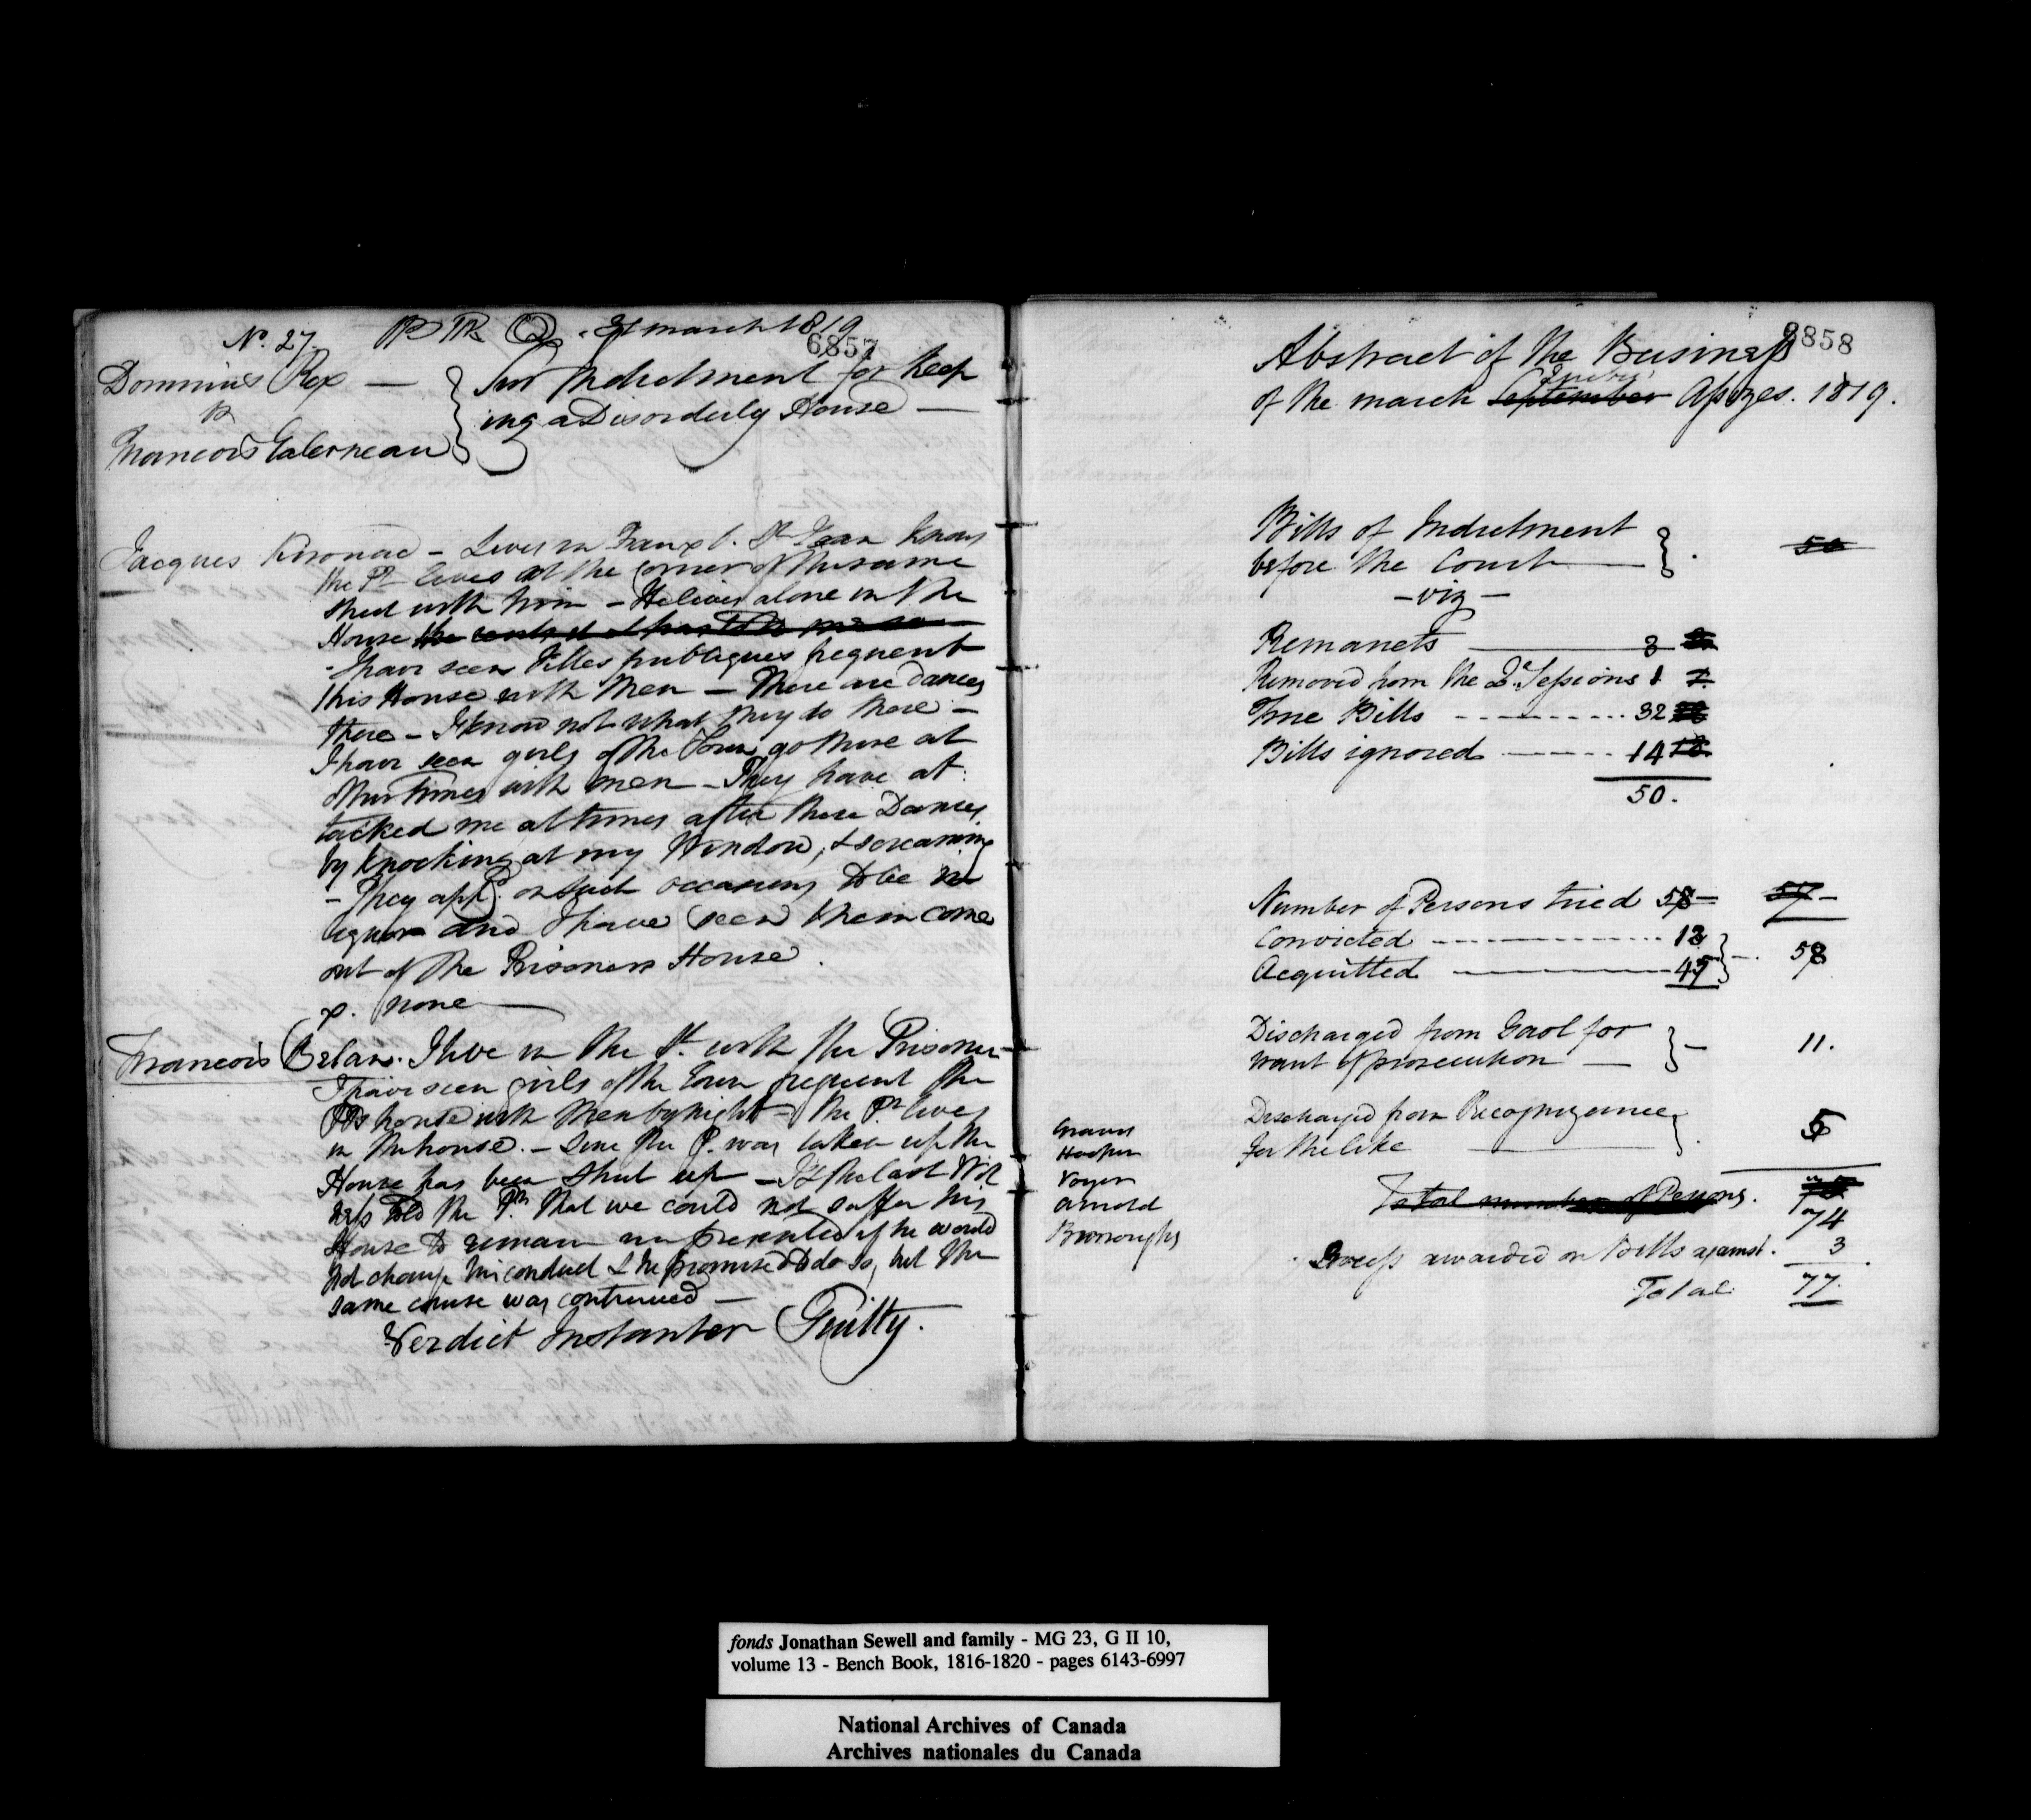 No. 27. B R Q. 31 march 1819
6857
Dominus Rex —
vs
Francois Galerneau
Sur Indictment for keep
ing a Disorderly House —
Jacques Kironac - Lives in Fauxb. St Jean knows
the Pr. lives at the corner of the same
street with him - He lives alone in the
House
- I have seen filles publiques frequent
this House with Men - There are dances
there - I know not what they do there -
I have seen girls of the Town go there at
other times with men - They have at
tacked me at times after these Dances
by knocking at my Window, & screaming
- They appd. on such occasions to be in
liquor and I have seen them come
out of the Prisoners House.
x. none —
Francois Belan. I live in the St. with the Prisoner
I have seen girls of the Town frequent the
Prs house with Men by night - the Pr. lives
in the house. - Since the P. was taken up the
House has been shut up - I & the last Wit
ness told the Pr. that we could not suffer his
House to remain unpresented if he would
not change his conduct & he promised to do so, but the
same course was continued —
Verdict Instanter Guilty.
6858
Abstract of the Business
of the march September Criminal Assizes. 1819.
Bills of Indictment
before the Court — 50
- viz -
Remanets — 3
Removed from the Q. Sessions 1
True Bills - - - - - 32
Bills ignored - - - 14
50.
Number of Persons tried 58 - 57 -
Convicted - - - - - 13
Acquitted — 45 - 58
Discharged from Gaol for
want of prosecution — 11.
Discharged from Recognizance
for the like — 5
Total number of Persons.
74
Process awarded on Bills against. 3
Total 77.
Graves
Hooper
Voyer
Arnold
Burroughs
fonds Jonathan Sewell and family - MG 23, G II 10,
volume 13 - Bench Book, 1816-1820 - pages 6143-6997
National Archives of Canada
Archives nationales du Canada